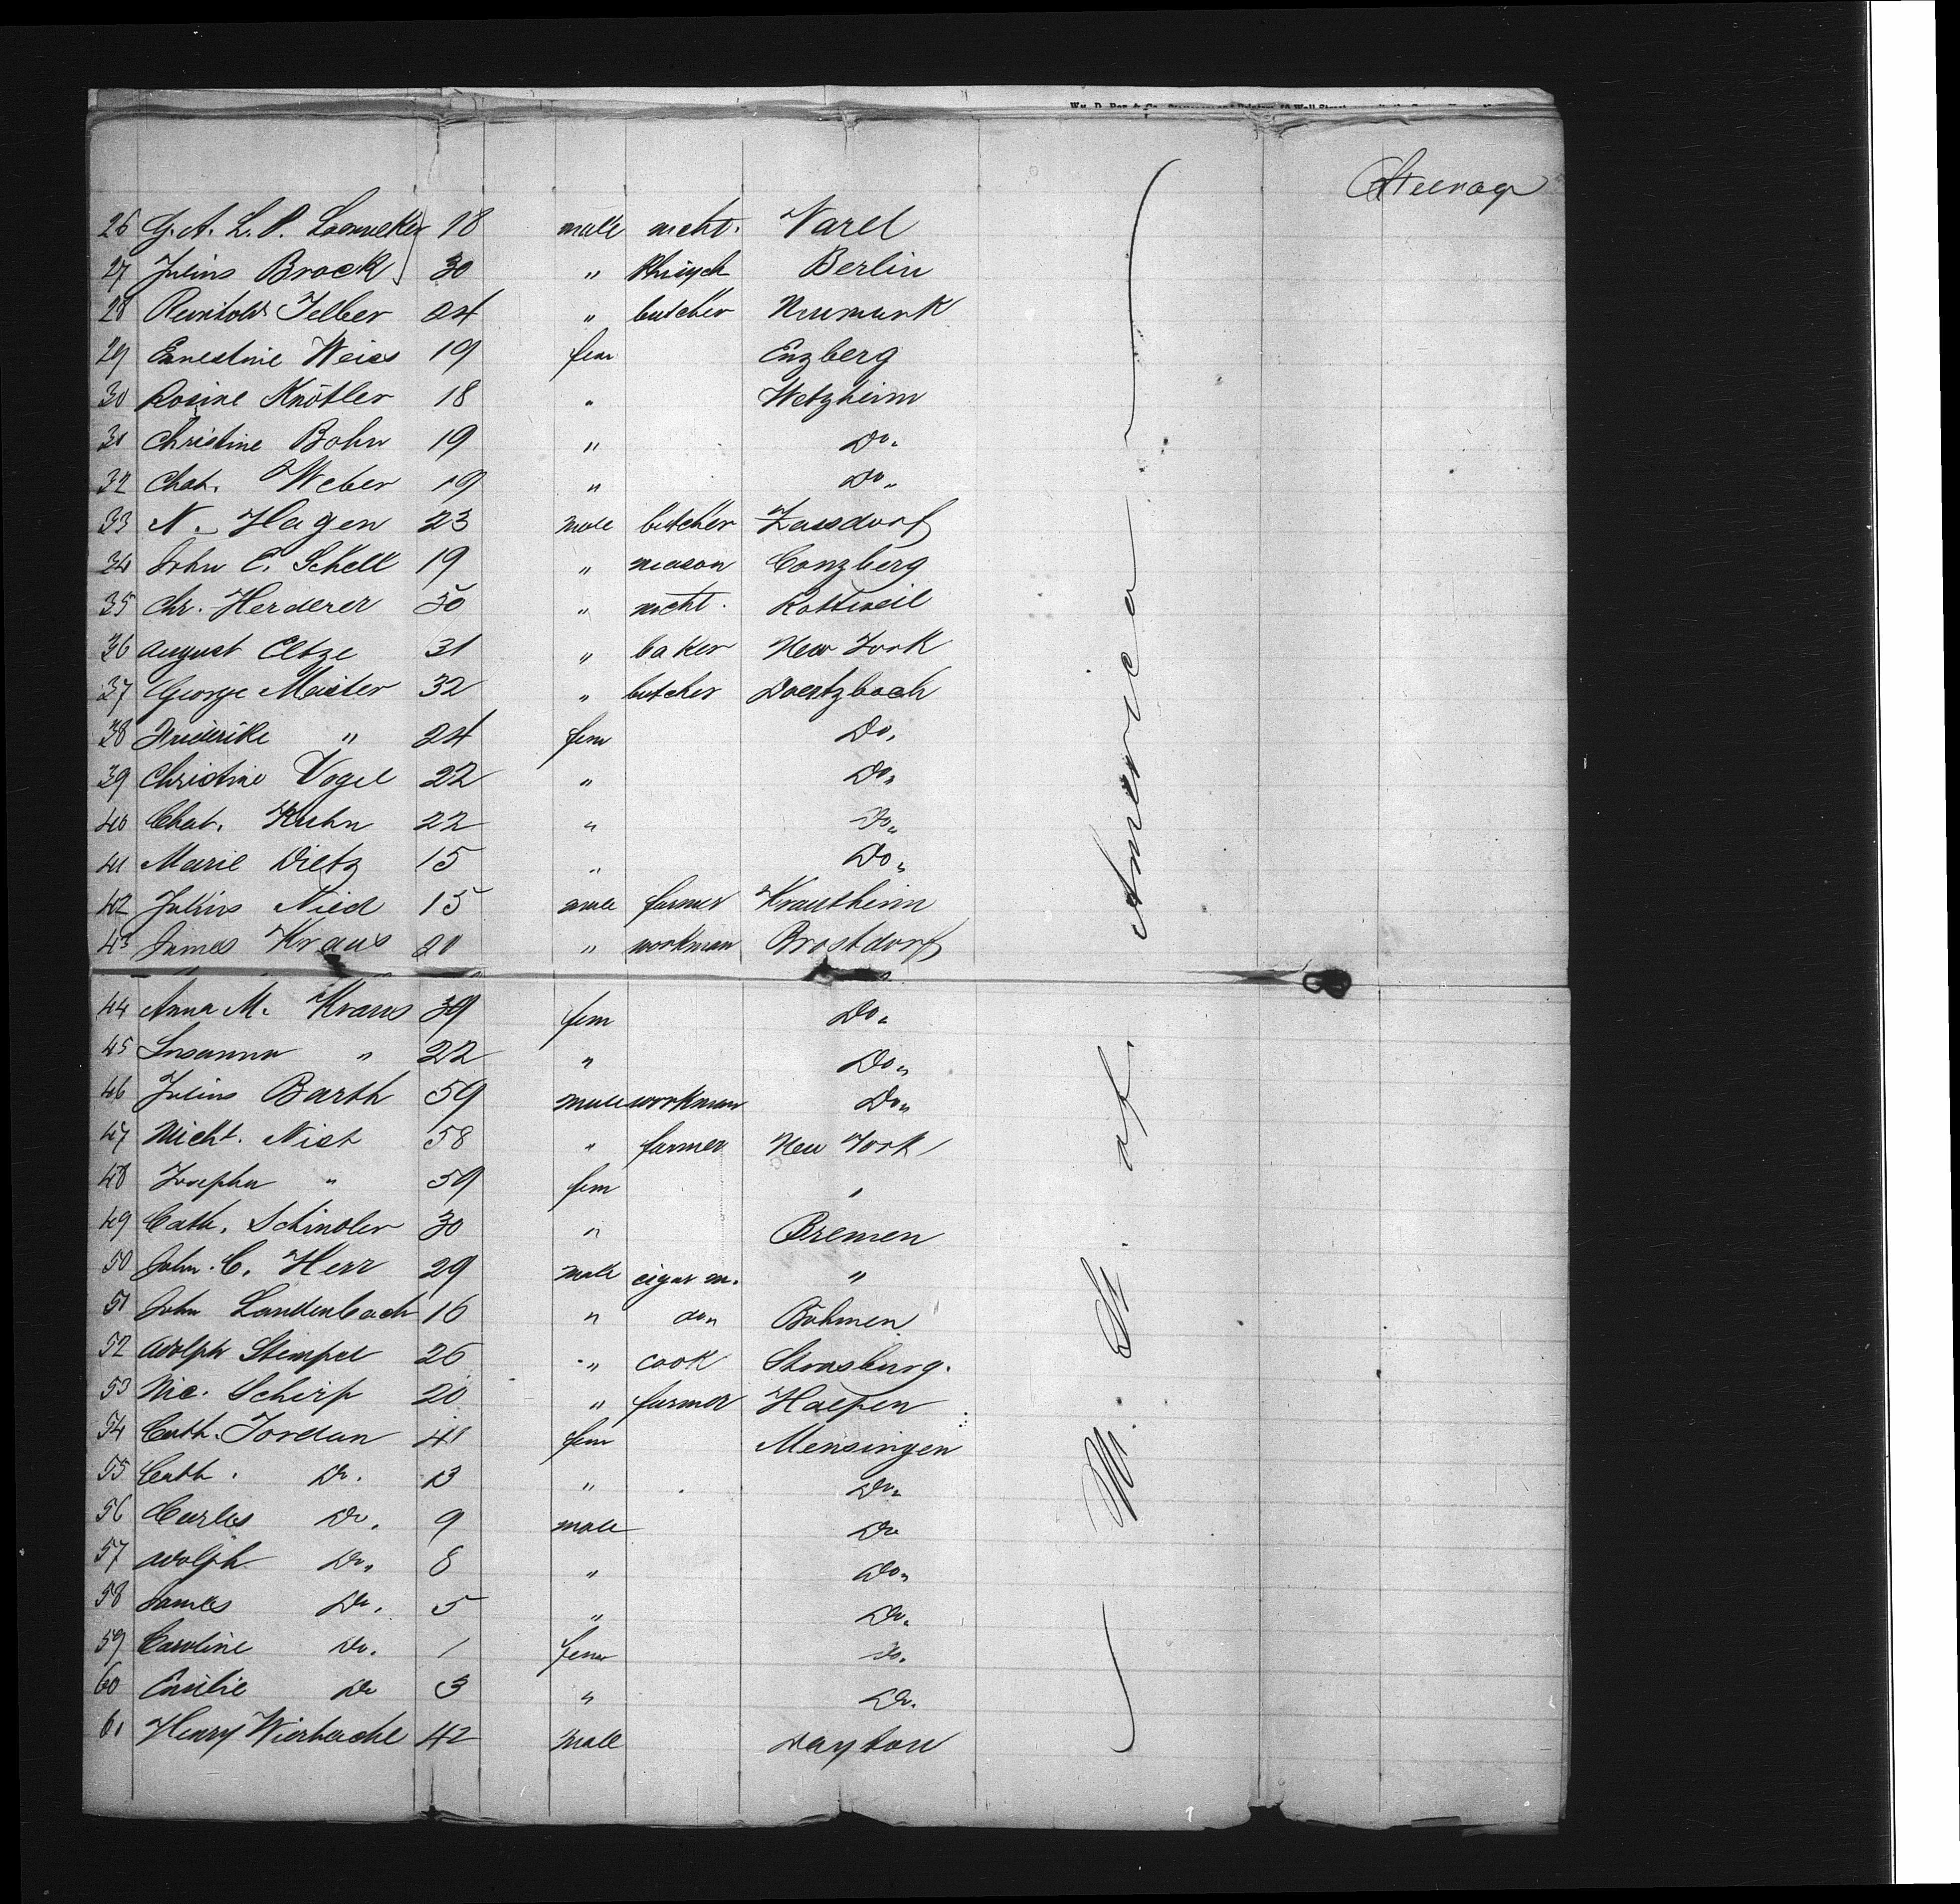 Steerage
26 G. A. L. P. 18 male mcht. Varel
27 Julius Brock 30 " Berlin
28 Reinhold Felber 24 " butcher Neumark
29 Ernestine Weiss 19 fem Enzberg
30 Rosine Knötler 18 " Wetzheim
31 Christine Bohn 19 " Do.
32 Chat. Weber 19 " Do.
33 N. Hagen 23 male butcher Zassdorf
34 John C. Schell 19 " mason Conzberg
35 Chr. Herderer 50 " mcht. Rottweil
36 August Eltze 31 " baker New York
37 George Meister 32 " butcher Doertzbach
38 Friderike " 24 fem Do.
39 Christine Vogel 22 " Do.
40 Chat. Kuhn 22 " Do.
41 Marie Dietz 15 " Do.
42 Julius Nied 15 male farmer Krautheim
43 James Kraus 20 " workman Brostdorf
44 Anna M. Kraus 39 fem Do.
45 Susanna " 22 " Do.
46 Julius Barth 59 male workman Do.
47 Micht. Nist 58 " farmer New York
48 Josepha " 59 fem "
49 Cath. Schindler 30 " Bremen
50 John. C. Herr 29 male cigar m. "
51 John Landenbach 16 " do. Böhmen
52 Adolph Stempel 26 " cook Strasburg.
53 Nic. Scherp 20 " farmer Halpen
54 Cath. Jordan 41 fem Mensingen
55 Cath. Do. 13 " Do.
56 Carles Do. 9 male Do
57 Adolph Do. 8 " Do.
58 James Do. 5 " Do.
59 Caroline Do. 1 fem Do.
60 Emilie Do 3 " Do.
61 Henry Wierbache 42 male Dayton
U. St. of. America